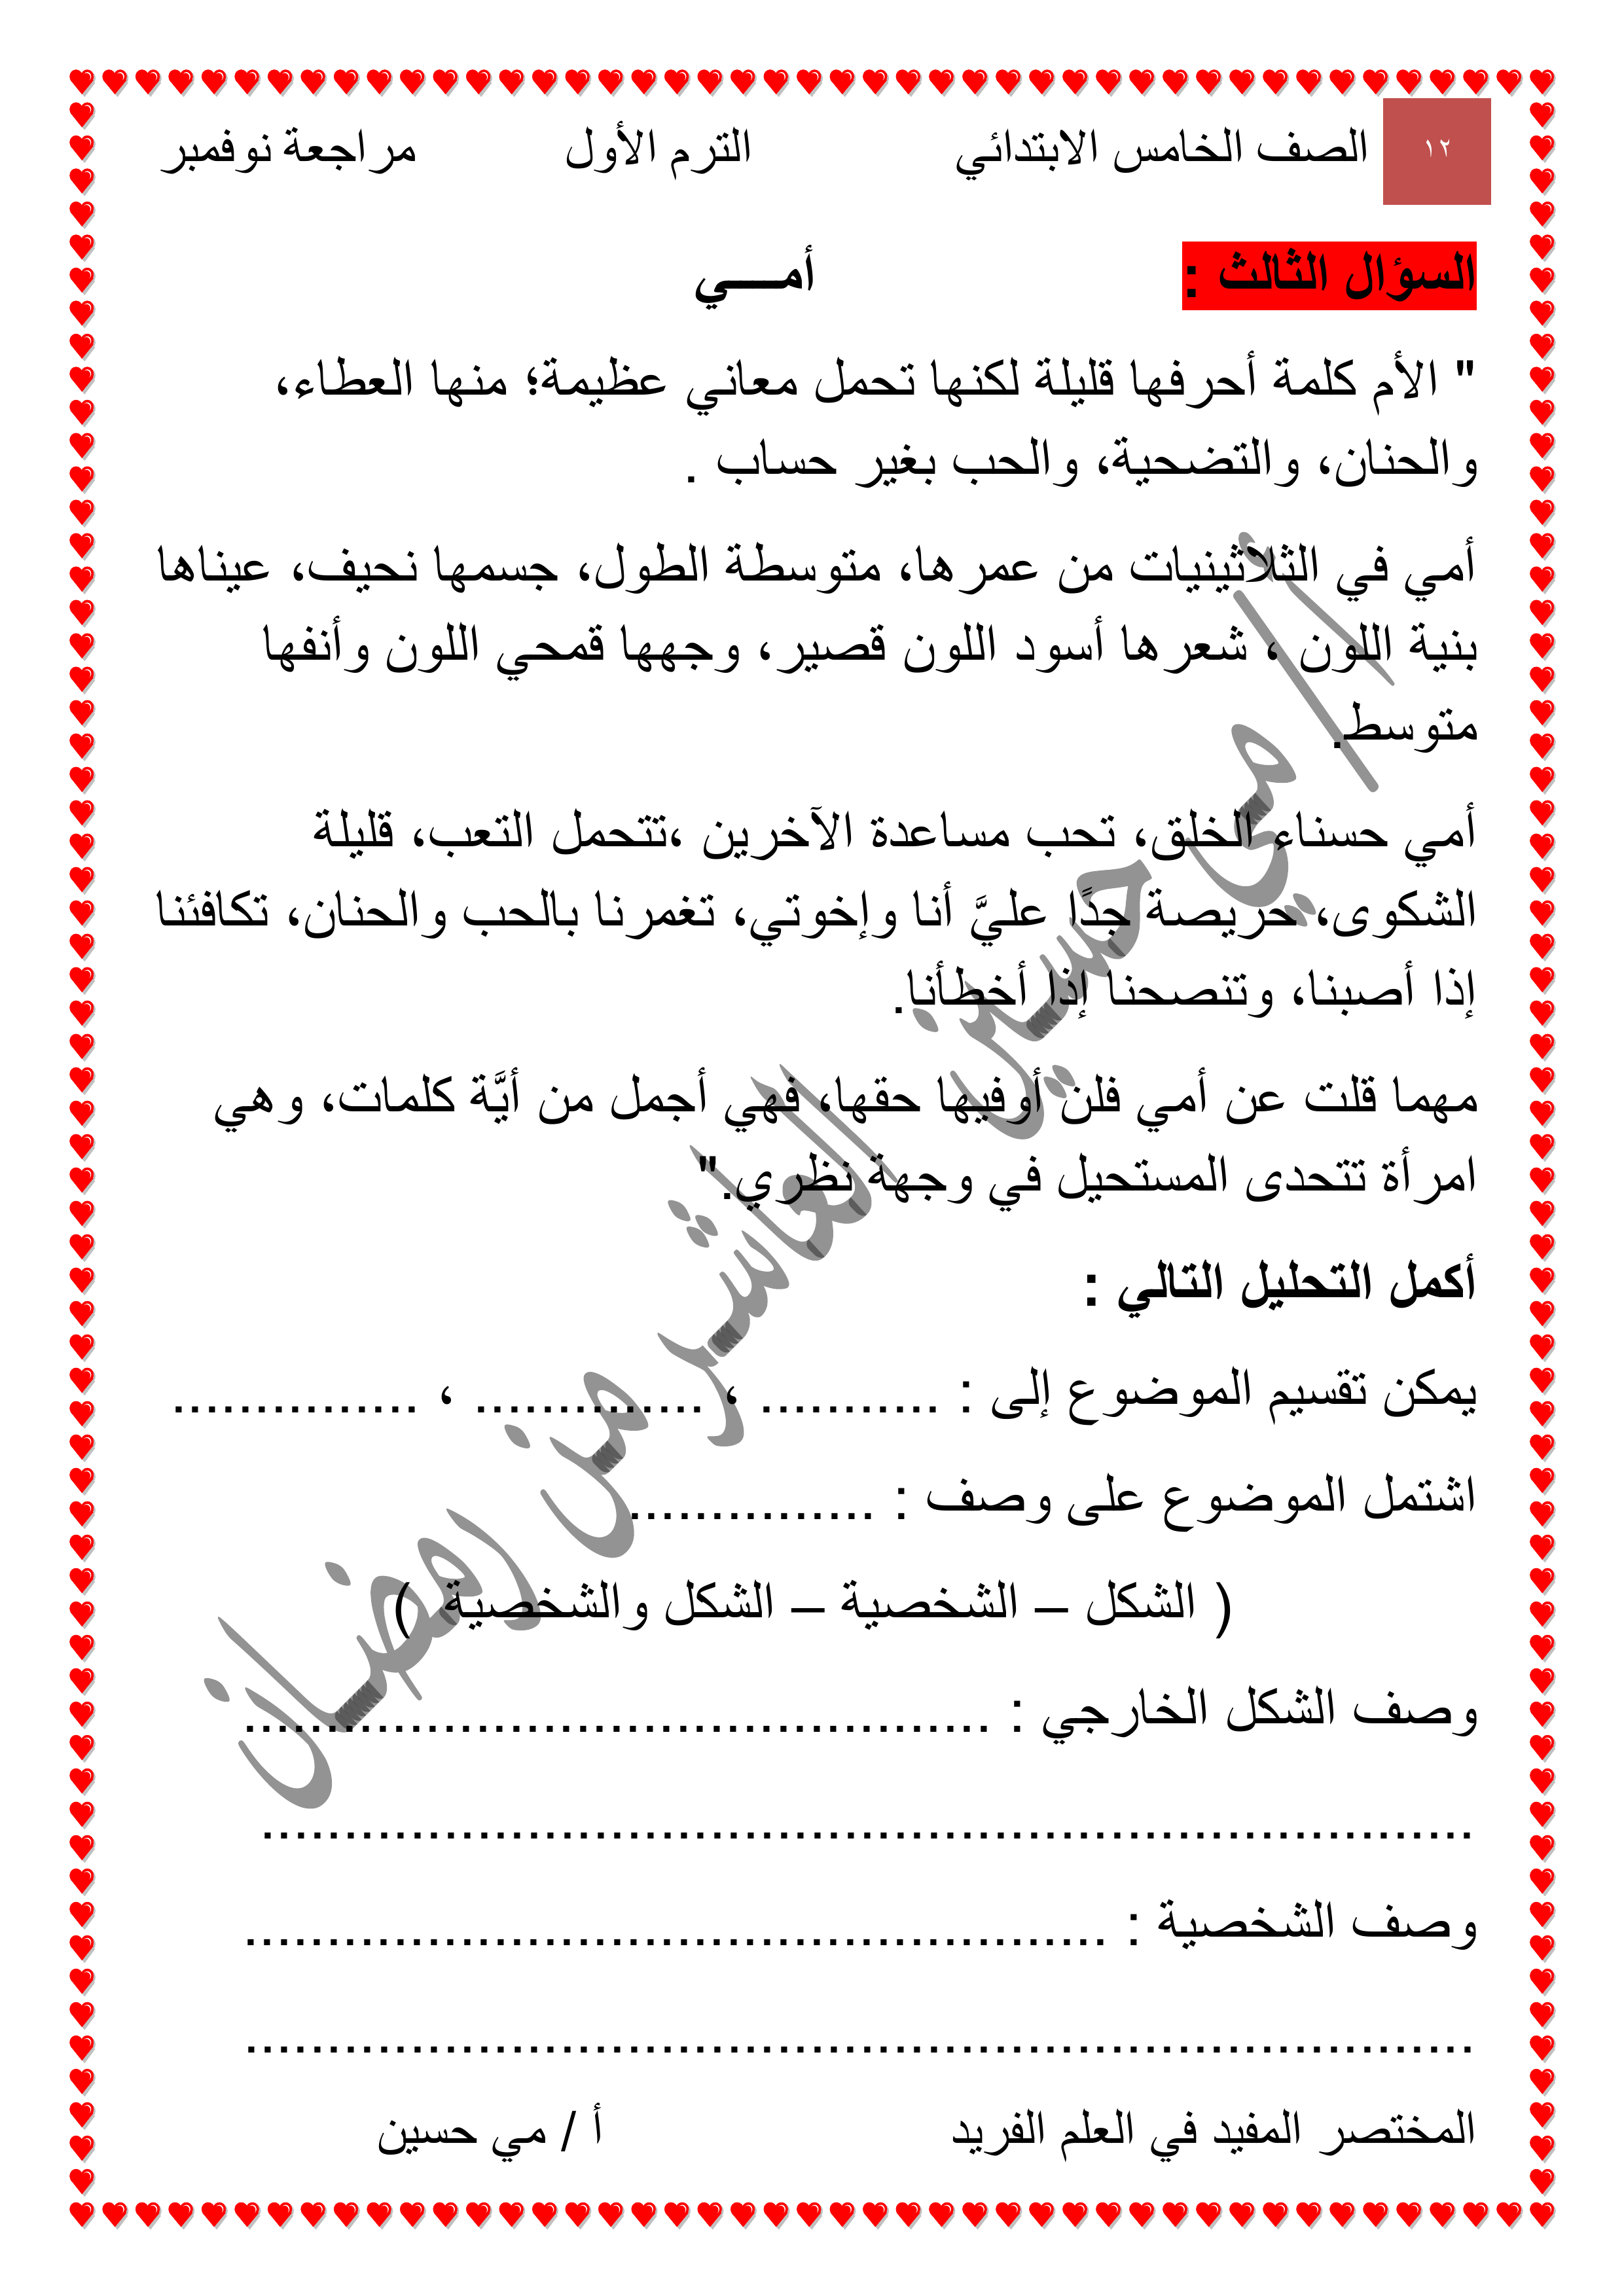 ١٢
الصف الخامس الابتدائي الترم الأول مراجعة نوفمبر
السؤال الثالث : أمـــي
" الأم كلمة أحرفها قليلة لكنها تحمل معاني عظيمة؛ منها العطاء،
والحنان، والتضحية، والحب بغير حساب .
أمي في الثلاثينيات من عمرها، متوسطة الطول، جسمها نحيف، عيناها
بنية اللون ، شعرها أسود اللون قصير، وجهها قمحي اللون وأنفها
متوسط.
أمي حسناء الخلق، تحب مساعدة الآخرين ،تتحمل التعب، قليلة
الشكوى، حريصة جدًا عليَّ أنا وإخوتي، تغمرنا بالحب والحنان، تكافئنا
إذا أصبنا، وتنصحنا إذا أخطأنا.
مهما قلت عن أمي فلن أوفيها حقها، فهي أجمل من أيَّة كلمات، وهي
امرأة تتحدى المستحيل في وجهة نظري."
أكمل التحليل التالي :
يمكن تقسيم الموضوع إلى : ........... ، .............. ، ...............
اشتمل الموضوع على وصف : ...............
( الشكل – الشخصية – الشكل والشخصية )
وصف الشكل الخارجي : .............................................
.........................................................................
وصف الشخصية : ....................................................
..........................................................................
المختصر المفيد في العلم الفريد أ / مي حسين
أ/ مي حسين العاشر من رمضان